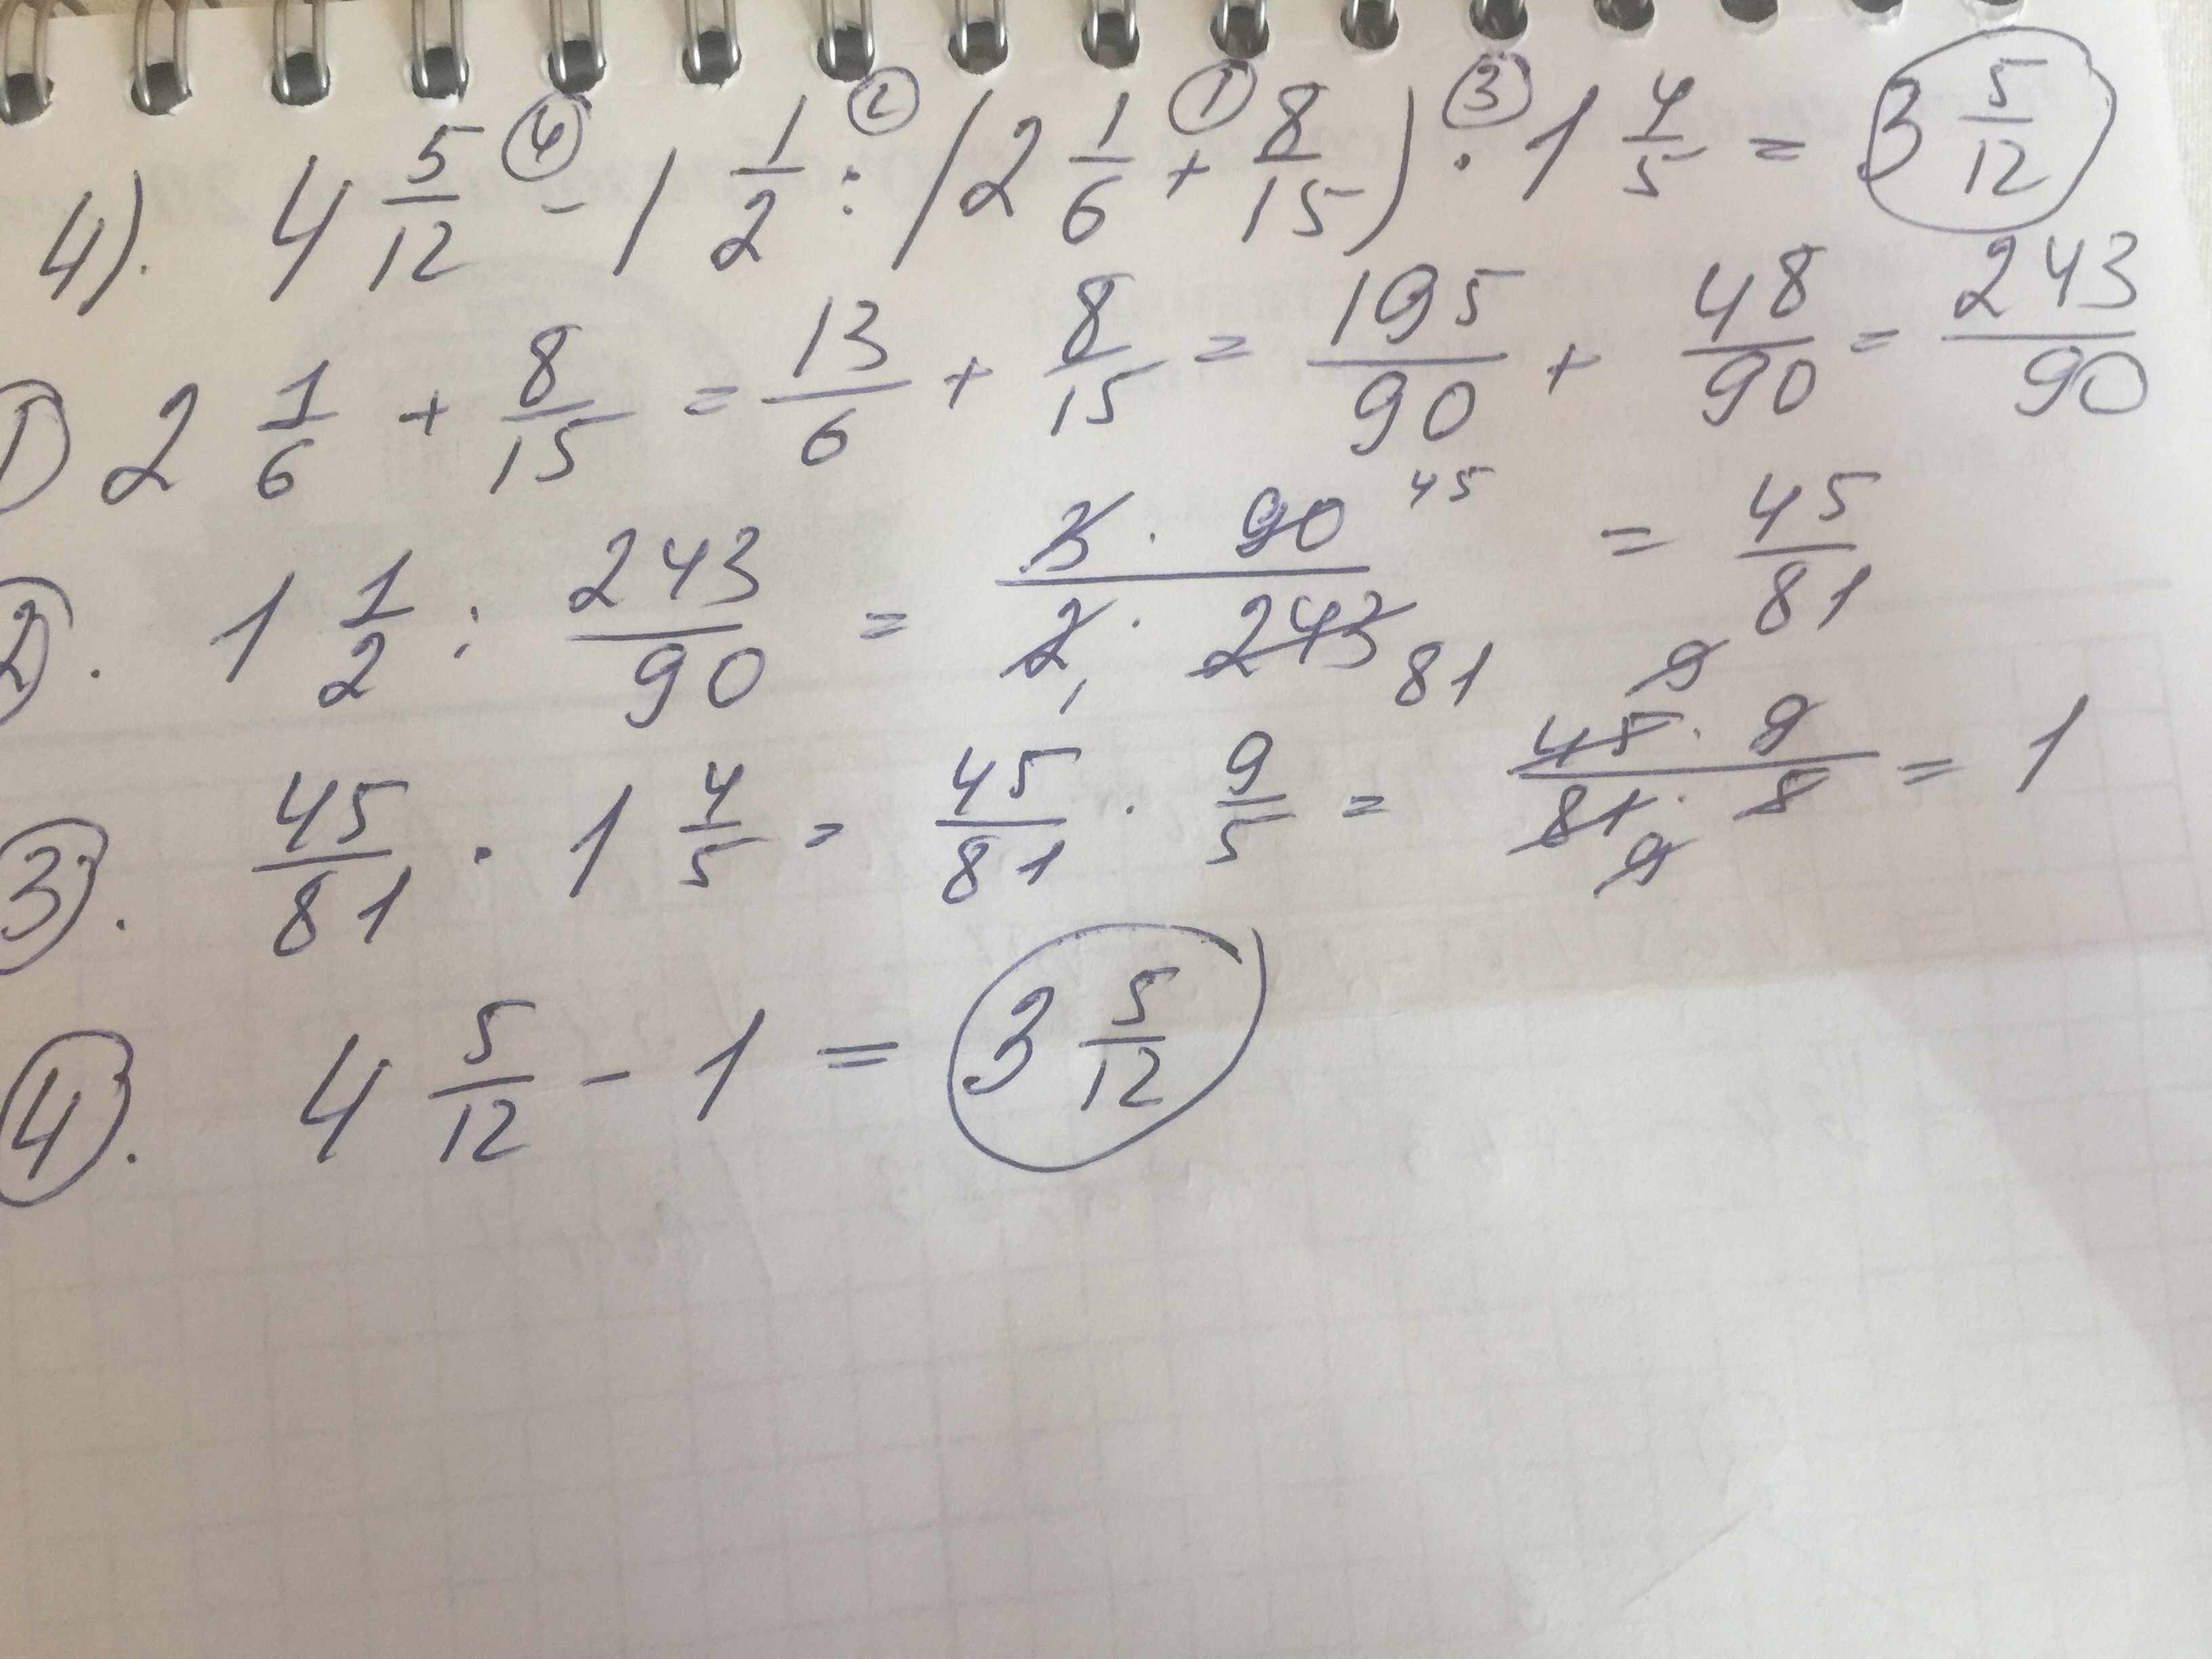 4). 4 5/12 ④ - 1 1/2 ② : (2 1/6 ① + 8/15) ③ · 1 4/5 = 3 5/12
① 2 1/6 + 8/15 = 13/6 + 8/15 = 195/90 + 48/90 = 243/90
②. 1 1/2 : 243/90 = 3 · 90 45 / 2 1 · 243 81 = 45/81
③. 45/81 · 1 4/5 = 45/81 · 9/5 = 45 9 · 9 / 81 9 · 5 = 1
④. 4 5/12 - 1 = 3 5/12